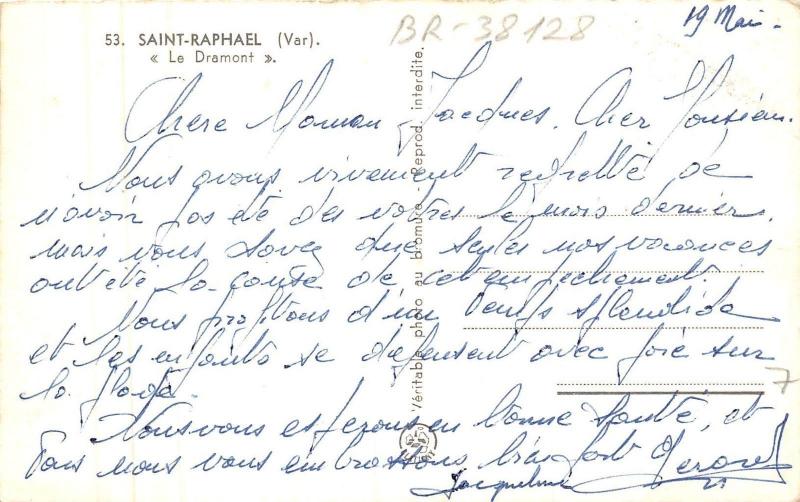 19 Mai -
BR-38128
53. SAINT-RAPHAEL (Var).
« Le Dramont ».
Chère Maman Jacques, Cher Monsieur.
Nous avons vivement regretté de
n'avoir pas été des votres le mois dernier,
mais vous savez que seules nos vacances
ont été la cause de cet empechement.
Nous profitons d'un temps splendide
et les enfants se depensent avec joie sur
la plage.
Nous vous esperons en bonne santé, et
Tous nous vous embrassons bien fort
Jacqueline
Véritable photo au bromure - Reprod. interdite.
7